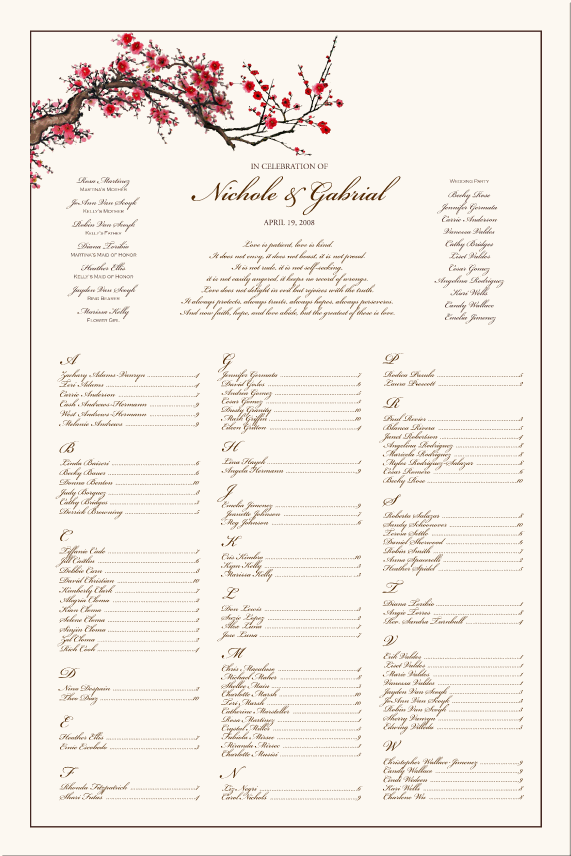 IN CELEBRATION OF
Nichole & Gabrial
APRIL 19, 2008
Rosa Martinez
MARTINA'S MOTHER
JoAnn Van Seogh
KELLY'S MOTHER
Robin Van Seogh
KELLY'S FATHER
Diana Toribio
MARTINA'S MAID OF HONOR
Heather Ellis
KELLY'S MAID OF HONOR
Jayden Van Seogh
RING BEARER
Marissa Kelly
FLOWER GIRL
Love is patient, love is kind.
It does not envy, it does not boast, it is not proud.
It is not rude, it is not self-seeking,
it is not easily angered, it keeps no record of wrongs.
Love does not delight in evil but rejoices with the truth.
It always protects, always trusts, always hopes, always perseveres.
And now faith, hope, and love abide, but the greatest of these is love.
WEDDING PARTY
Becky Rose
Jennifer Germata
Carrie Anderson
Vanessa Valdes
Cathy Bridges
Liset Valdes
Cesar Gomez
Angelina Rodriguez
Kari Wells
Candy Wallace
Emelia Jimenez
A
Zachary Adams-Vannyn
Teri Adams
Carrie Anderson
Cash Andrews-Hermann
West Andrews-Hermann
Melanie Andrews
B
Linda Baiseri
Becky Bauer
Donna Benton
Judy Borquez
Cathy Bridges
Derrick Browning
C
Tiffanie Cade
Jill Catlin
Debbie Carn
David Christian
Kimberly Clark
Alegria Cloma
Kian Cloma
Selene Cloma
Sinjin Cloma
Zel Cloma
Rich Cook
D
Nina Despain
Theo Diaz
E
Heather Ellis
Ernie Escobedo
F
Rhonda Fitzpatrick
Shari Futus
G
Jennifer Germata
David Gisler
Andria Gomez
Cesar Gomez
Dusty Granity
Mark Griffin
Eileen Grition
H
Lisa Haydt
Angela Hermann
J
Emelia Jimenez
Jeanette Johnson
Meg Johnson
K
Cris Kindria
Ryan Kelly
Marissa Kelly
L
Don Lewis
Suzie Lopez
Alba Luna
Jose Luna
M
Chris Macaluse
Michael Maher
Shellie Main
Charlotte Marsh
Teri Marsh
Catherine Marsteller
Rosa Martinez
Crystal Miller
Fabiola Missec
Miranda Missec
Charlotte Massie
N
Liz Negri
Carol Nichols
P
Rodica Pasula
Laura Prescott
R
Paul Revier
Blanca Rivera
Janet Robertson
Angelina Rodriguez
Maricela Rodriguez
Myles Rodriguez-Salazar
Cesar Romero
Becky Rose
S
Roberta Salazar
Sandy Schoonover
Teresa Settle
Daniel Sherwood
Robin Smith
Anna Spacarelli
Heather Spidel
T
Diana Toribio
Angie Torres
Rev. Sandra Turnbull
V
Erik Valdes
Liset Valdes
Marie Valdes
Vanessa Valdes
Jayden Van Seogh
JoAnn Van Seogh
Robin Van Seogh
Sherry Vannyn
Edwing Villeda
W
Christopher Wallace-Jimenez
Candy Wallace
Cindi Wideen
Kari Wells
Charlene Wu